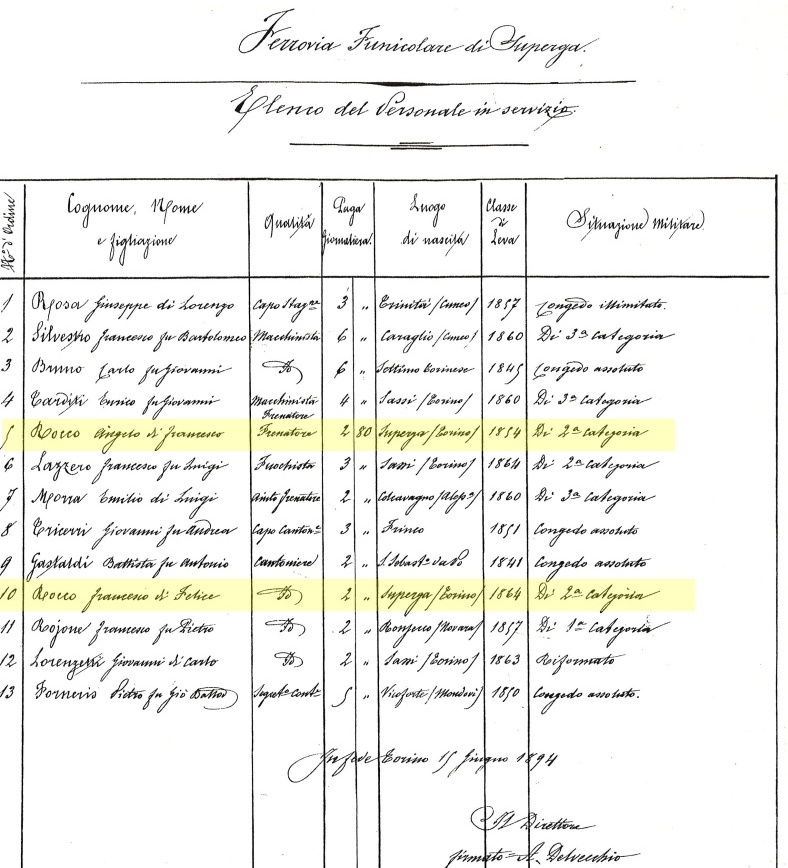 Ferrovia Funicolare di Superga.
Elenco del Personale in servizio.
N.o d'Ordine | Cognome, Nome e figliazione | Qualità | Paga giornaliera. | Luogo di nascita | Classe di Leva | Situazione Militare.
1 Rosa Giuseppe di Lorenzo | 3 „ | Trinità (Cuneo) | 1857 | Congedo illimitato.
2 Silvestro Francesco fu Bartolomeo | Macchinista | 6 „ | Caraglio (Cuneo) | 1860 | Di 3a Categoria
3 Bruno Carlo fu Giovanni | Id | 6 „ | Settimo Torinese | 1845 | Congedo assoluto
4 Tarditi Enrico fu Giovanni | Macchinista Frenatore | 4 „ | Sassi (Torino) | 1860 | Di 3a Categoria
5 Rocco Angelo di Francesco | Frenatore | 2 80 | Superga (Torino) | 1854 | Di 2a Categoria
6 Lazzero Francesco fu Luigi | Fuochista | 3 „ | Sassi (Torino) | 1864 | Di 2a Categoria
7 Morra Emilio di Luigi | Aiuto frenatore | 2 „ | 1860 | Di 3a Categoria
8 Tricerri Giovanni fu Andrea | Capo Canton.e | 3 „ | Frinco | 1851 | Congedo assoluto
9 Gastaldi Battista fu Antonio | Cantoniere | 2 „ | S. Sebast.o da Po | 1841 | Congedo assoluto
10 Rocco Francesco di Felice | Id | 2 „ | Superga (Torino) | 1864 | Di 2a Categoria
11 Rojone Francesco fu Pietro | Id | 2 „ | 1857 | Di 1a Categoria
12 Lorenzetti Giovanni di Carlo | Id | 2 „ | Sassi (Torino) | 1863 | Riformato
13 Forneris Pietro fu Gio Batta | 5 „ | Vicoforte (Mondovì) | 1850 | Congedo assoluto.
In fede Torino 15 Giugno 1894
Il Direttore
firmato = A. Delvecchio